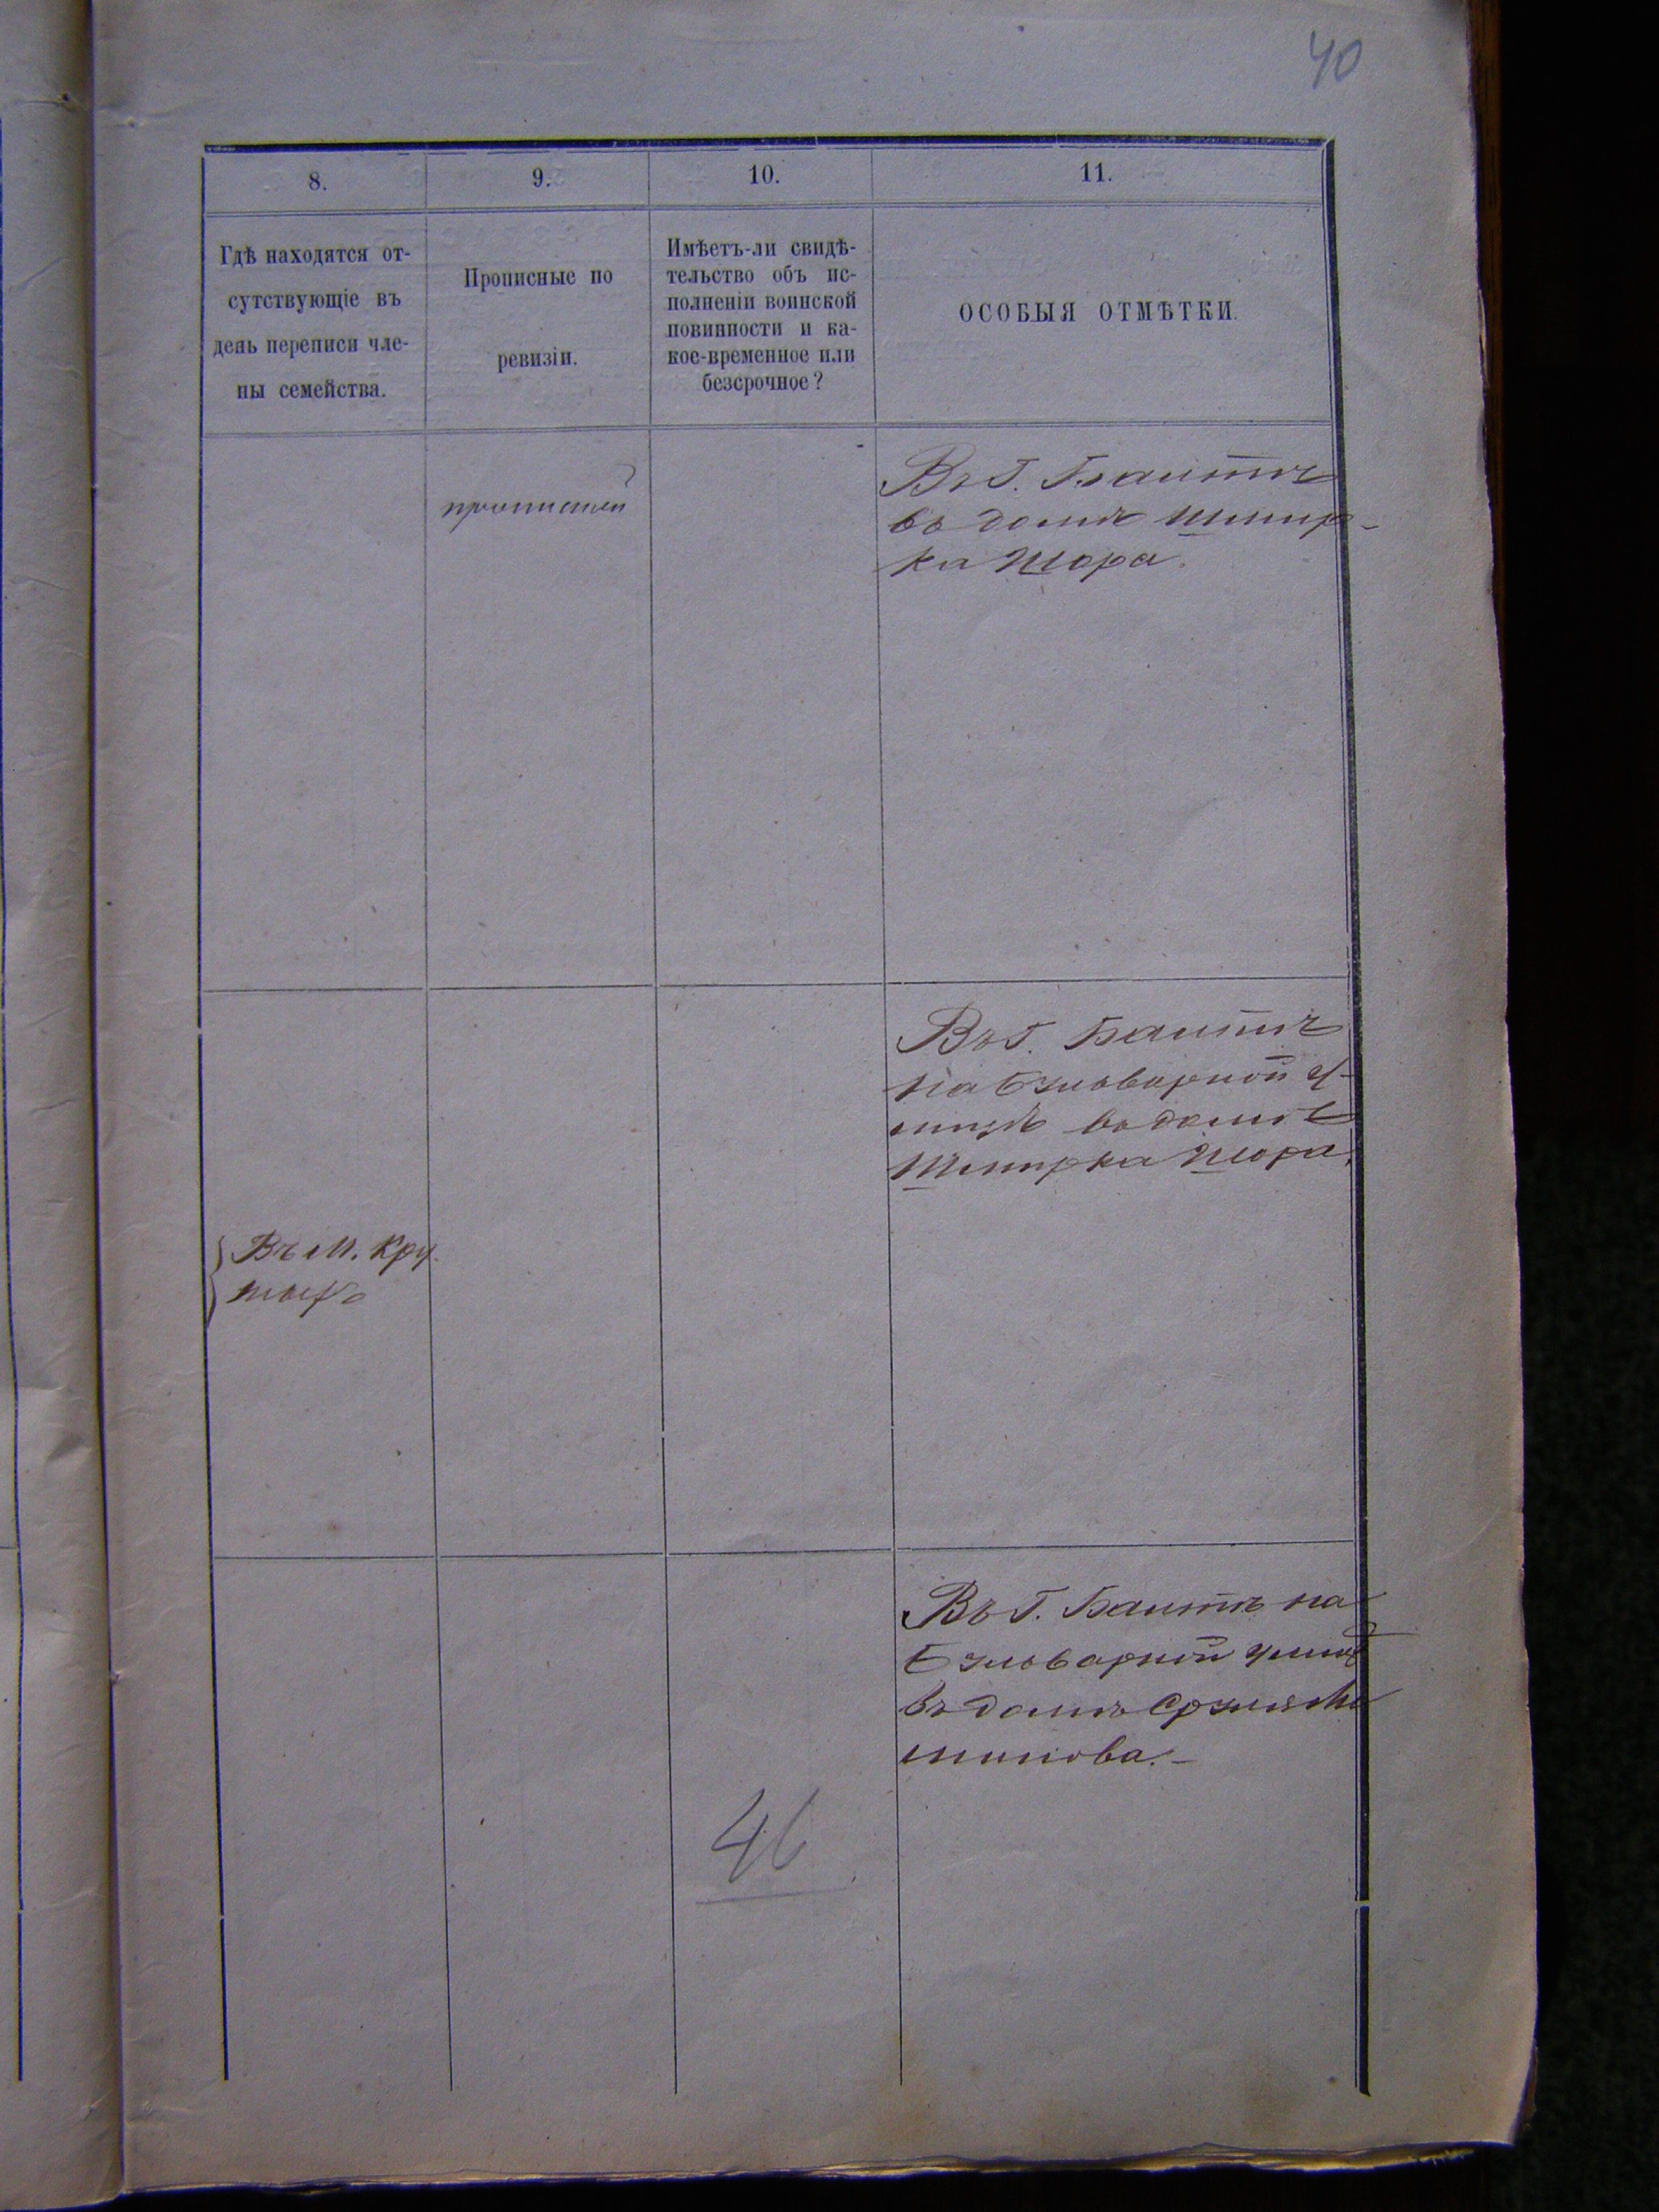 40
8.
9.
10.
11.
Гдѣ находятся от-
сутствующіе въ
день переписи чле-
ны семейства.
Прописные по
ревизіи.
Имѣетъ-ли свидѣ-
тельство объ ис-
полненіи воинской
повинности и ка-
кое-временное или
безсрочное?
ОСОБЫЯ ОТМѢТКИ.
прописной
Въ Г. Балтѣ
въ домѣ Шмир-
ка Шора.
Въ Г. Балтѣ
на у-
лицѣ въ домѣ
Шмирка Шора.
Въ М. Кру-
тыхъ
Въ Г. Балтѣ на
улицѣ
въ домѣ
46